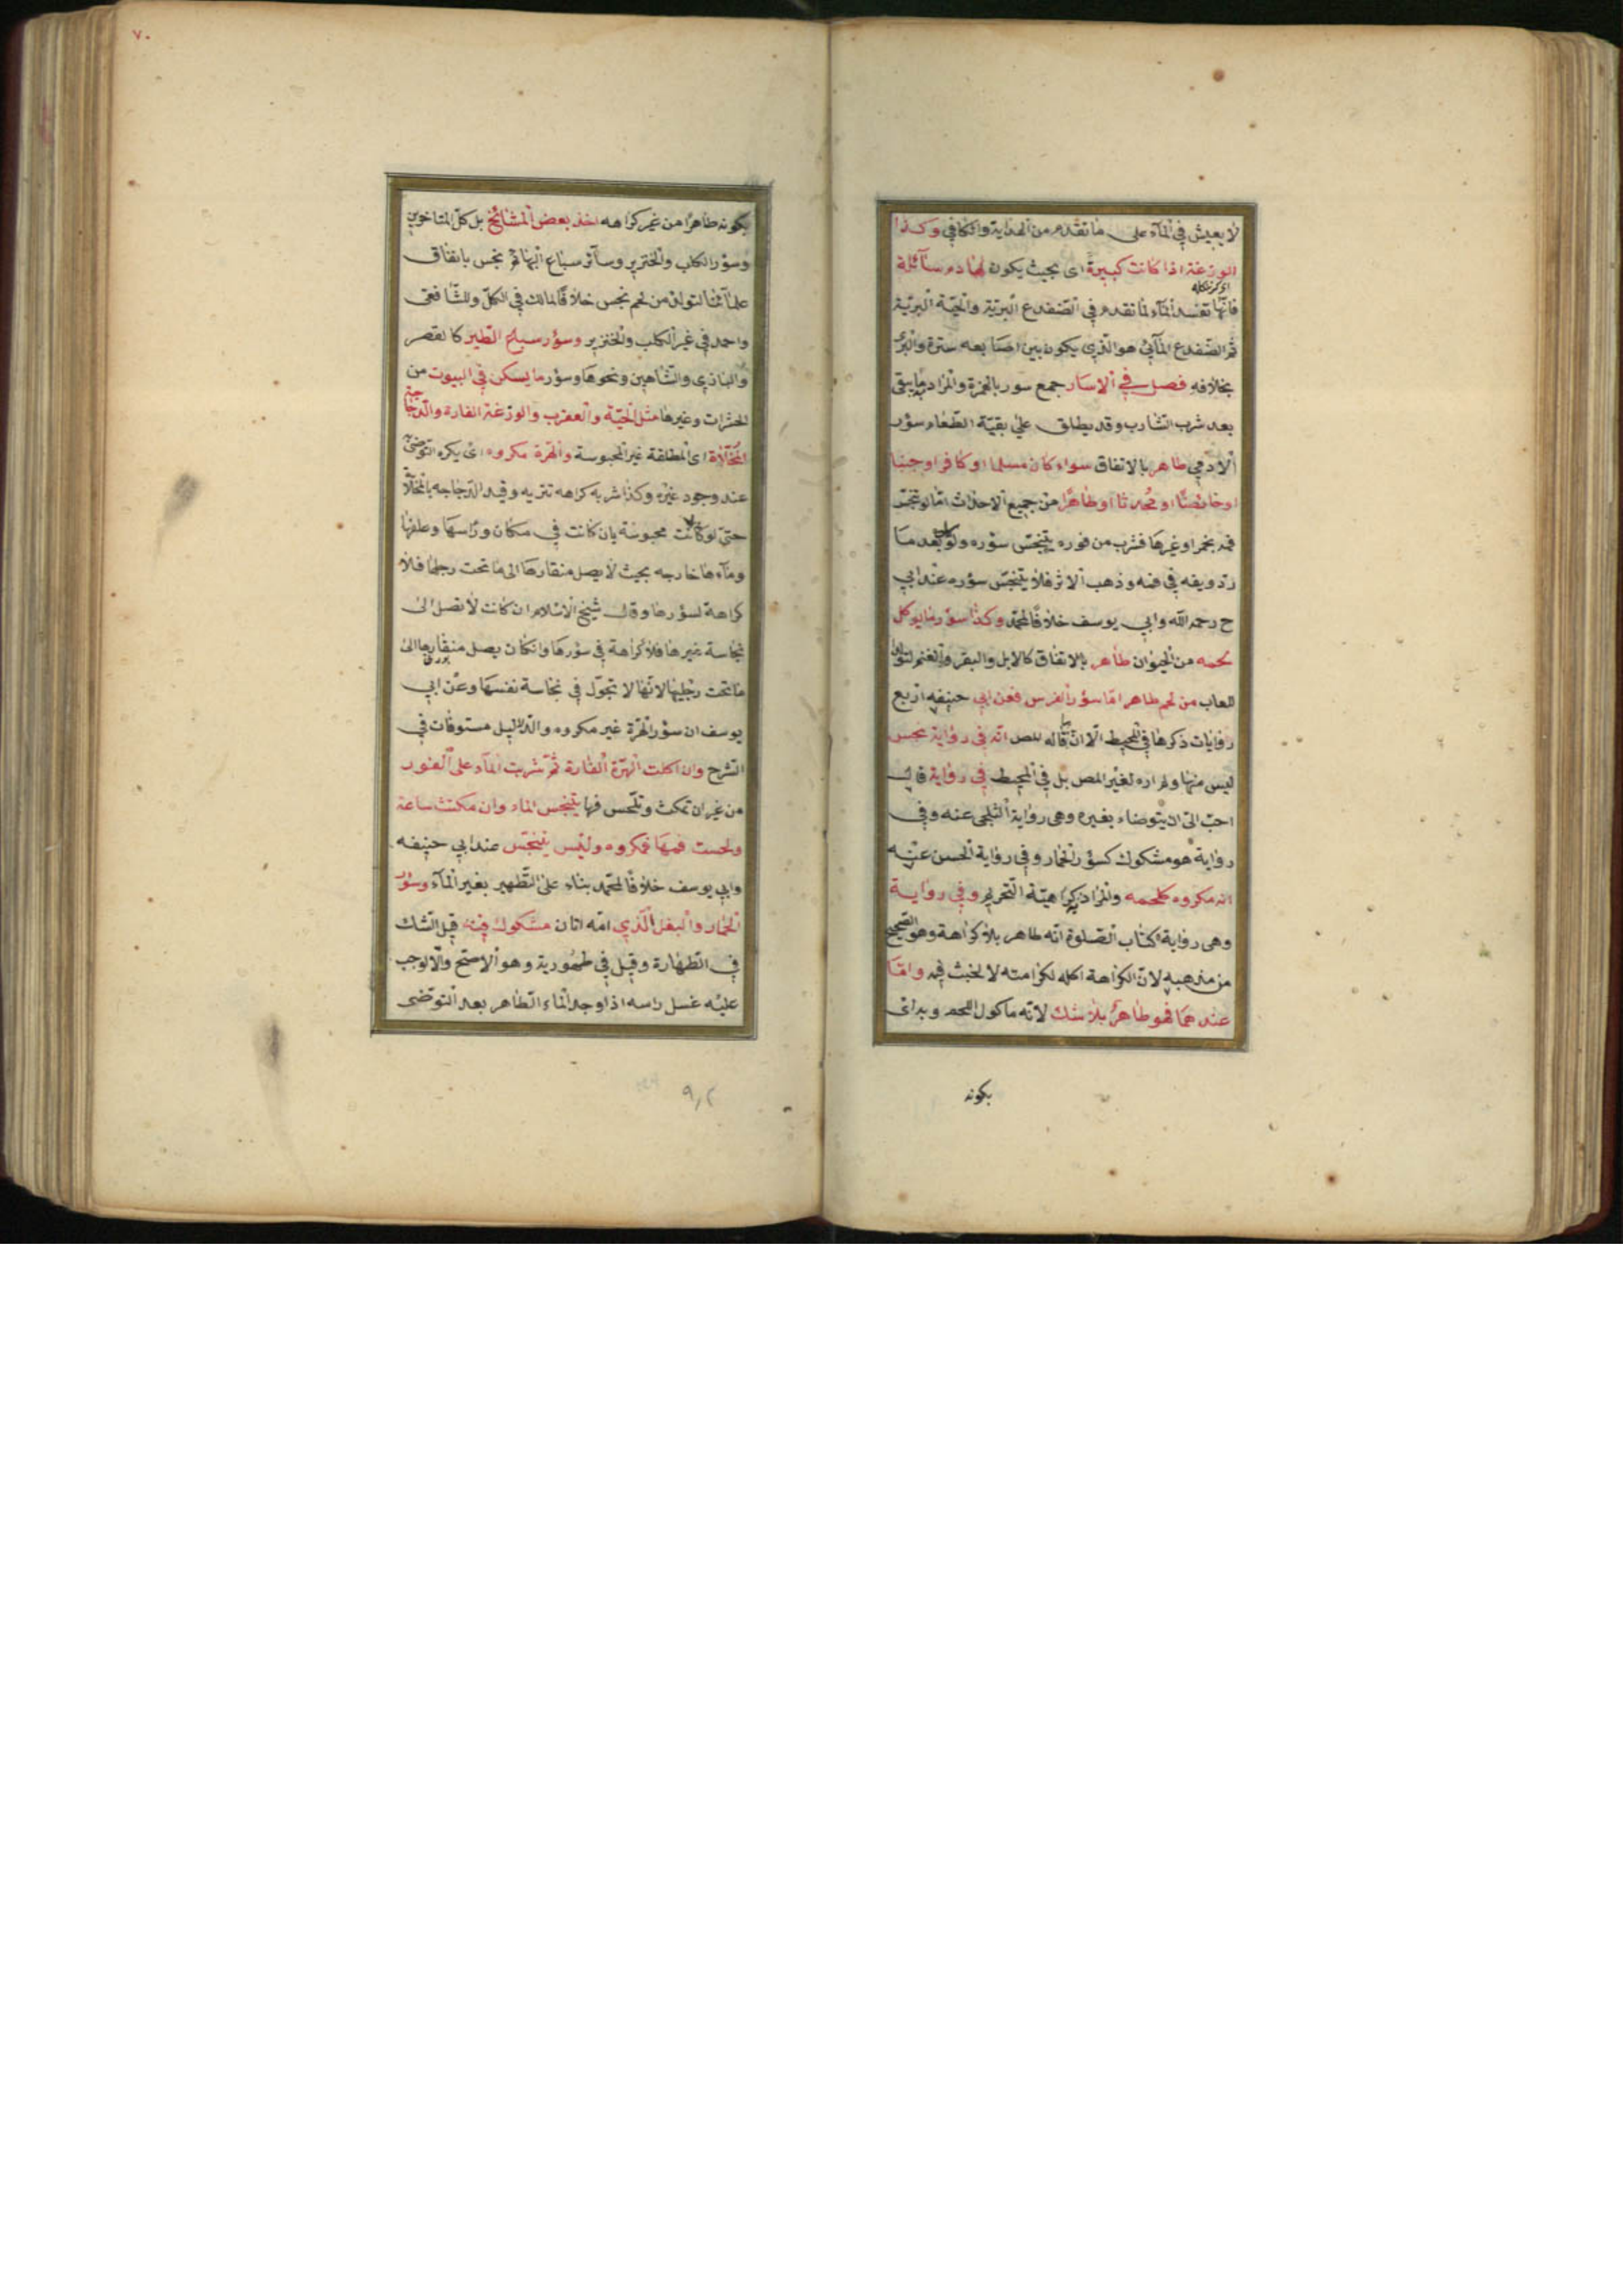 لا يعيش في المآء على ما تقدم من الهداية والكافي وكذا
الوزغة اذا كانت كبيرة اى بحيث يكون لها دم سآئلة
فانها تفسد المآء لما تقدم في الضفدع البرية والحية البرية
ثم الضفدع المآئي هو الذي يكون بين اصابعه سترة والبري
بخلافه فصل في الاسار جمع سور بالهمزة والمراد ما يبقى
بعد شرب الشارب وقد يطلق على بقية الطعام سؤر
الادمي طاهر بالاتفاق سواء كان مسلما او كافرا او جنبا
او حائضا او محدثا او طاهرا من جميع الاحداث اما لو تنجس
فمه بخمر او غيرها فشرب من فوره يتنجس سؤره ولو بعد ما
ردد ريقه في فمه وذهب الاثر فلا يتنجس سؤره عند ابي
ح رحمه الله وابي يوسف خلافا لمحمد وكذا سؤر ما يوكل
لحمه من الحيوان طاهر بالاتفاق كالابل والبقر والغنم لتولد
اللعاب من لحم طاهر اما سؤر الفرس فعن ابي حنيفه اربع
روايات ذكرها في المحيط الا ان ما قاله المص انه في رواية نجس
ليس منها ولم اره لغير المص بل في المحيط في رواية قال
احب الى ان يتوضاء بغيره وهى رواية البلخى عنه وفي
رواية هو مشكوك كسؤر الحمار وفي رواية الحسن عنه
انه مكروه كلحمه والمراد كراهية التحريم وفي رواية
وهى رواية كتاب الصلوة انه طاهر بلا كراهة وهو الصحيح
من مذهبه لان الكراهة اكله لكرامته لا لخبث فيه واما
عندهما فهو طاهر بلا شك لانه ماكول اللحم وبه اى
بكونه
٧٠
بكونه طاهرا من غير كراهه اخذ بعض المشائخ بل كل المتاخرين
وسؤر الكلب والخنزير وسآئر سباع البهائم نجس باتفاق
علمآئنا لتولده من لحم نجس خلافا لمالك في الكل وللشافعى
واحمد في غير الكلب والخنزير وسؤر سباع الطير كالصقر
والبازى والشاهين ونحوها وسؤر ما يسكن في البيوت من
الحشرات وغيرها مثل الحية والعقرب والوزغة الفارة والدجاجة
المخلاة اى المطلقة غير المحبوسة والهرة مكروه اى يكره التوضى
عند وجود غيره وكذا شربه كراهه تنزيه وقيد الدجاجه بالمخلاة
حتى لو كانت محبوسة بان كانت في مكان وراسها وعلفها
ومآءها خارجه بحيث لا يصل منقارها الى ما تحت رجلها فلا
كراهة لسؤرها وقال شيخ الاسلام ان كانت لا تصل الى
نجاسة غيرها فلا كراهة في سؤرها وان كان يصل منقارها الى
ما تحت رجليها لانها لا تجول في نجاسة نفسها وعن ابي
يوسف ان سؤر الهرة غير مكروه والدليل مستوفات في
الشرح وان اكلت الهرة الفارة ثم شربت المآء على الفور
من غير ان تمكث وتلحس فمها يتنجس الماء وان مكثت ساعة
ولحست فمها فمكروه وليس بنجس عند ابي حنيفه
وابي يوسف خلافا لمحمد بناء على التطهير بغير المآء وسؤر
الحمار والبغل الذي امه اتان مشكوك فيه قيل الشك
في الطهارة وقيل في طهورية وهو الاصح والا لوجب
عليه غسل راسه اذا وجد الماء الطاهر بعد التوضى